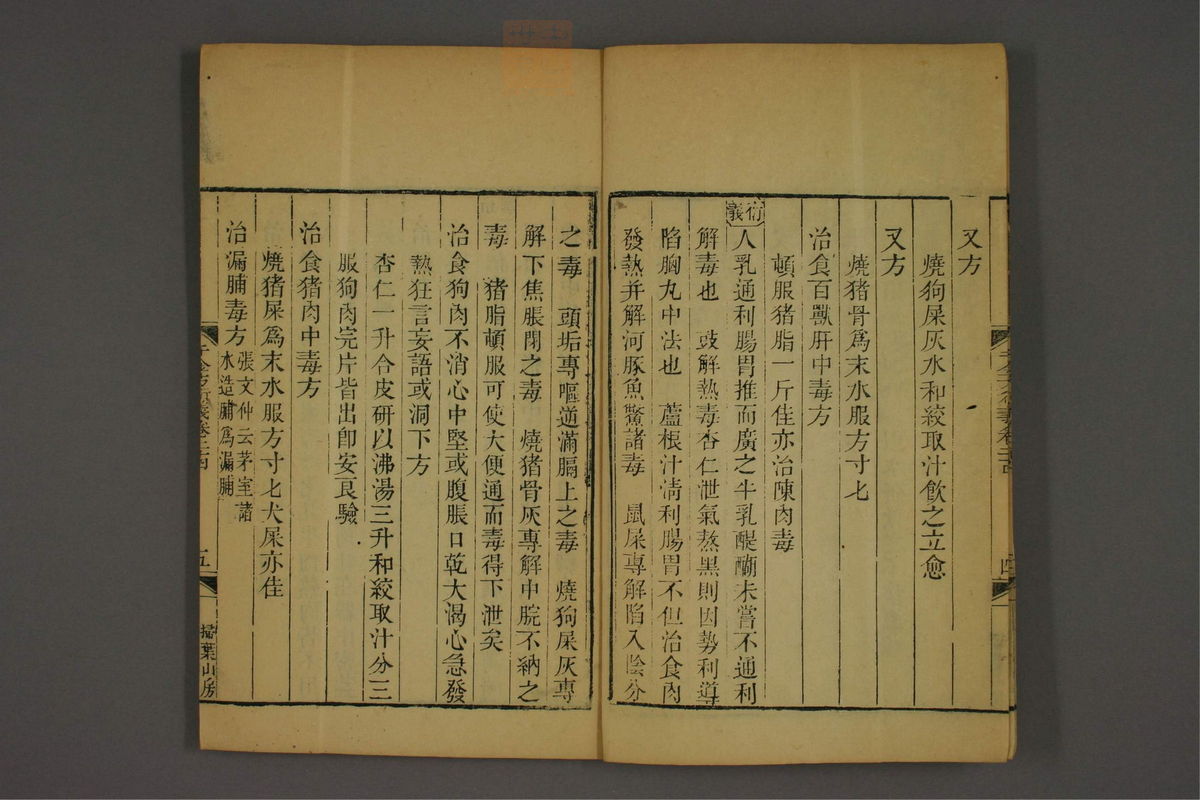 又方
燒狗屎灰水和絞取汁飮之立愈
又方
燒猪骨爲末水服方寸七
治食百獸肝中毒方
頓服猪脂一斤佳亦治陳肉毒
衍義
人乳通利腸胃推而廣之牛乳醍醐未嘗不通利
解毒也　豉解熱毒杏仁泄氣熬黑則因勢利導
陷胸丸中法也　蘆根汁淸利腸胃不但治食肉
發熱并解河豚魚蟹諸毒　鼠屎專解陷入陰分
之毒　頭垢專嘔逆滿膈上之毒　燒狗屎灰專
解下焦脹閉之毒　燒猪骨灰專解中脘不納之
毒　猪脂頓服可使大便通而毒得下泄矣
治食狗肉不消心中堅或腹脹口乾大渴心急發
熱狂言妄語或洞下方
杏仁一升合皮研以沸湯三升和絞取汁分三
服狗肉完片皆出卽安良驗
治食猪肉中毒方
燒猪屎爲末水服方寸七犬屎亦佳
治漏脯毒方
張文仲云茅室諸
水造脯爲漏脯
五
掃葉山房
四